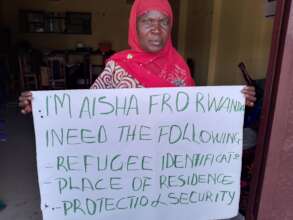 I'M AISHA FRO RWANDA
I NEED THE FOLLOWING
- REFUGEE IDENTIFICATIO
- PLACE OF RESIDENCE
- PROTECTIO & SECURITY